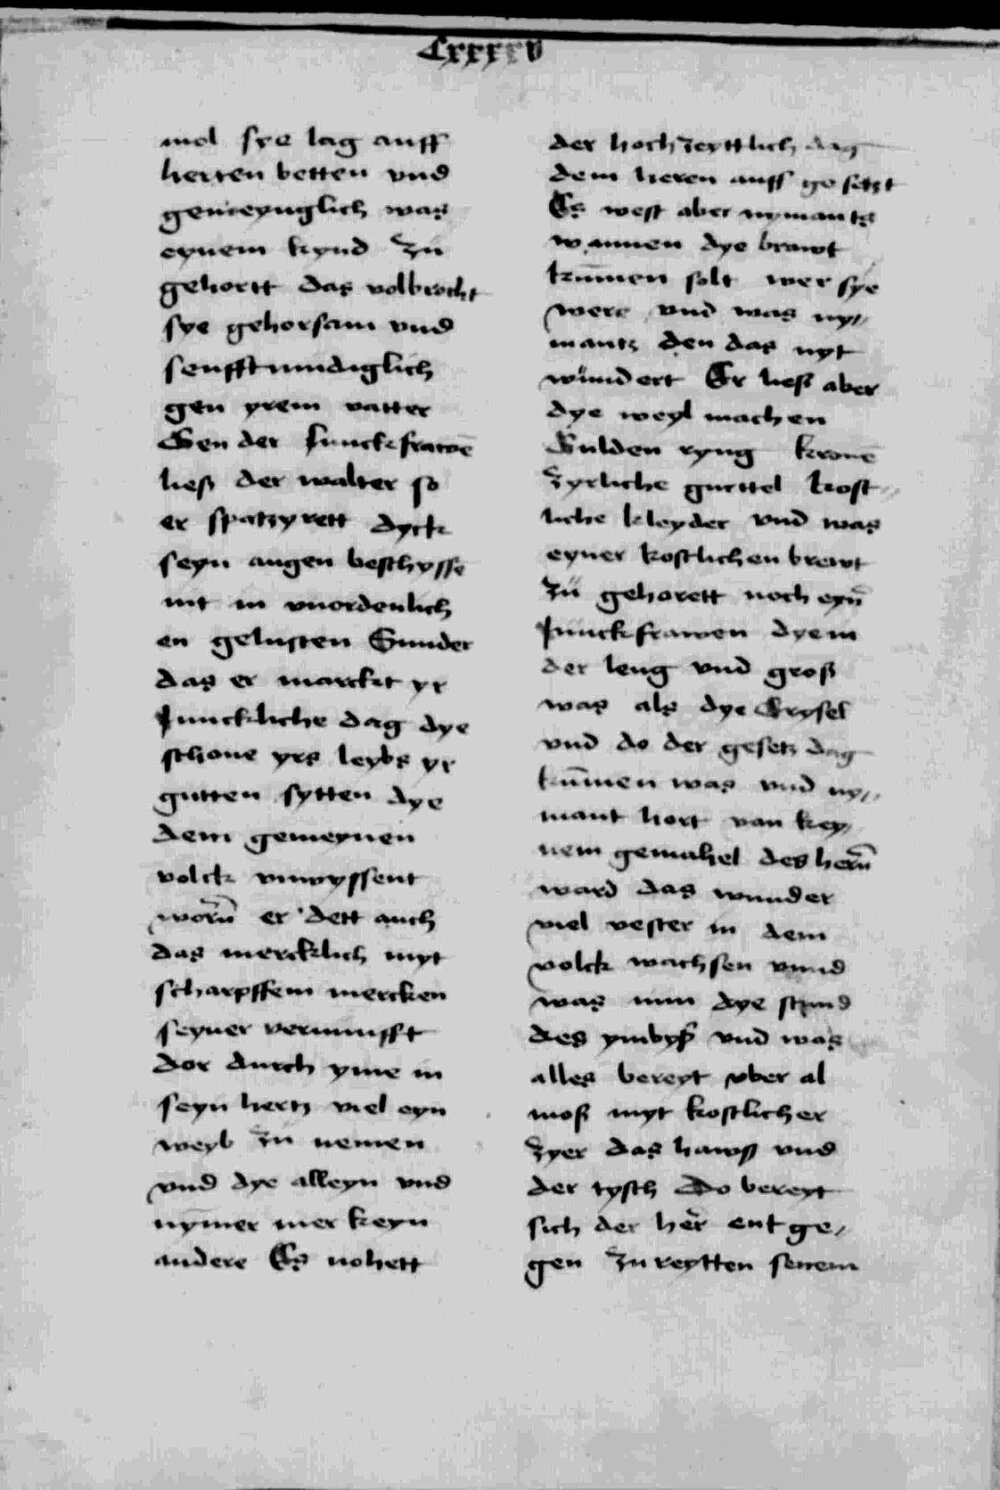 Cxxxxv
mol sye lag auff
herten betten vnd
gemeynglich was
eynem kynd zu
gehortt das volbrocht
sye gehorsam vnd
senfftmudiglich
gen yrem vatter
Gen der Junckfrawē
ließ der walter so
er spatzyrett dyck
seyn augen beschysse
nit in vnordenlich
en gelusten Sunder
das er marcket yr
Junckliche dag dye
schone yrs leybs yr
gutten sytten dye
dem gemeynen
volck vnwyssent
worn̄ er dett auch
das mercklich myt
scharpffem mercken
seyner vernunfft
dor durch yme in
seyn hertz viel eyn
weyb zu nemen
vnd dye alleyn vnd
nymer mer keyn
andere Es nohett
der hochzeyttlich dag
dem heren auff gesetzt
Es west aber nymants
wannen dye brawt
kūmen solt wer sye
were vnd was ny//
mantz den das nyt
wundert Er ließ aber
dye weyl machen
Gulden ryng kronē
zyrliche gurttel kost//
liche kleyder vnd was
eyner kostlichen brewt
zu gehorett noch eyn̄
Junckfrawen dye in
der leng vnd groß
was als dye Grysel
vnd do der gesetz dag
kūmen was vnd ny//
mant hort van key/
nem gemahel des hern̄
ward das wunder
viel vester in dem
volck wachsen vnnd
was nun dye stund
des ymbyß vnd was
alles bereyt vber al
moß myt kostlicher
zyer das hawß vnd
der tysch Do bereyt
sich der her entge/
gen zu reytten senem